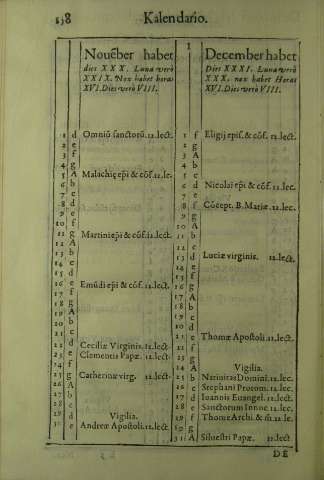 138 Kalendario.
Nouẽber habet
dies XXX. Luna verò
XXIX. Nox habet horas
XVI. Dies verò VIII.
1 d Omniũ sanctorũ. 12. lect.
2 e
3 f
4 g
5 A Malachię epi & cõf. 12. le.
6 b
7 c
8 d
9 e
10 f
11 g Martini epi & cõf. 12. lect.
12 A
13 b
14 c
15 d
16 e Emũdi epi & cõf. 12. lect.
17 f
18 g
19 A
20 b
21 c
22 d Ceciliæ Virginis. 12. lect.
23 e Clementis Papæ. 12. lect.
24 f
25 g Catherinæ virg. 12. lect.
26 A
27 b
28 c
29 d Vigilia.
30 e Andreæ Apostoli. 12. lect.
December habet
Dies XXXI. Luna verò
XXX. nox habet Horas
XVI. Dies verò VIII.
1 f Eligij epis. & cõf. 12. lect.
2 g
3 A
4 b
5 c
6 d Nicolai epi & cõf. 12. lec.
7 e
8 f Cõcept. B. Mariæ. 12. lec.
9 g
10 A
11 b
12 c
13 d Luciæ virginis. 12. lect.
14 e
15 f
16 g
17 A
18 b
19 c
20 d
21 e Thomæ Apostoli 12. lect.
22 f
23 g
24 A Vigilia.
25 b Natiuitas Domini. 12. lec.
26 c Stephani Protom. 12. lec.
27 d Ioannis Euangel. 12. lect.
28 e Sanctorum Innoc. 12. lec.
29 f Thomæ Archi. & m. 12. le.
30 g
31 A Siluestri Papæ. 12. lect.
DE